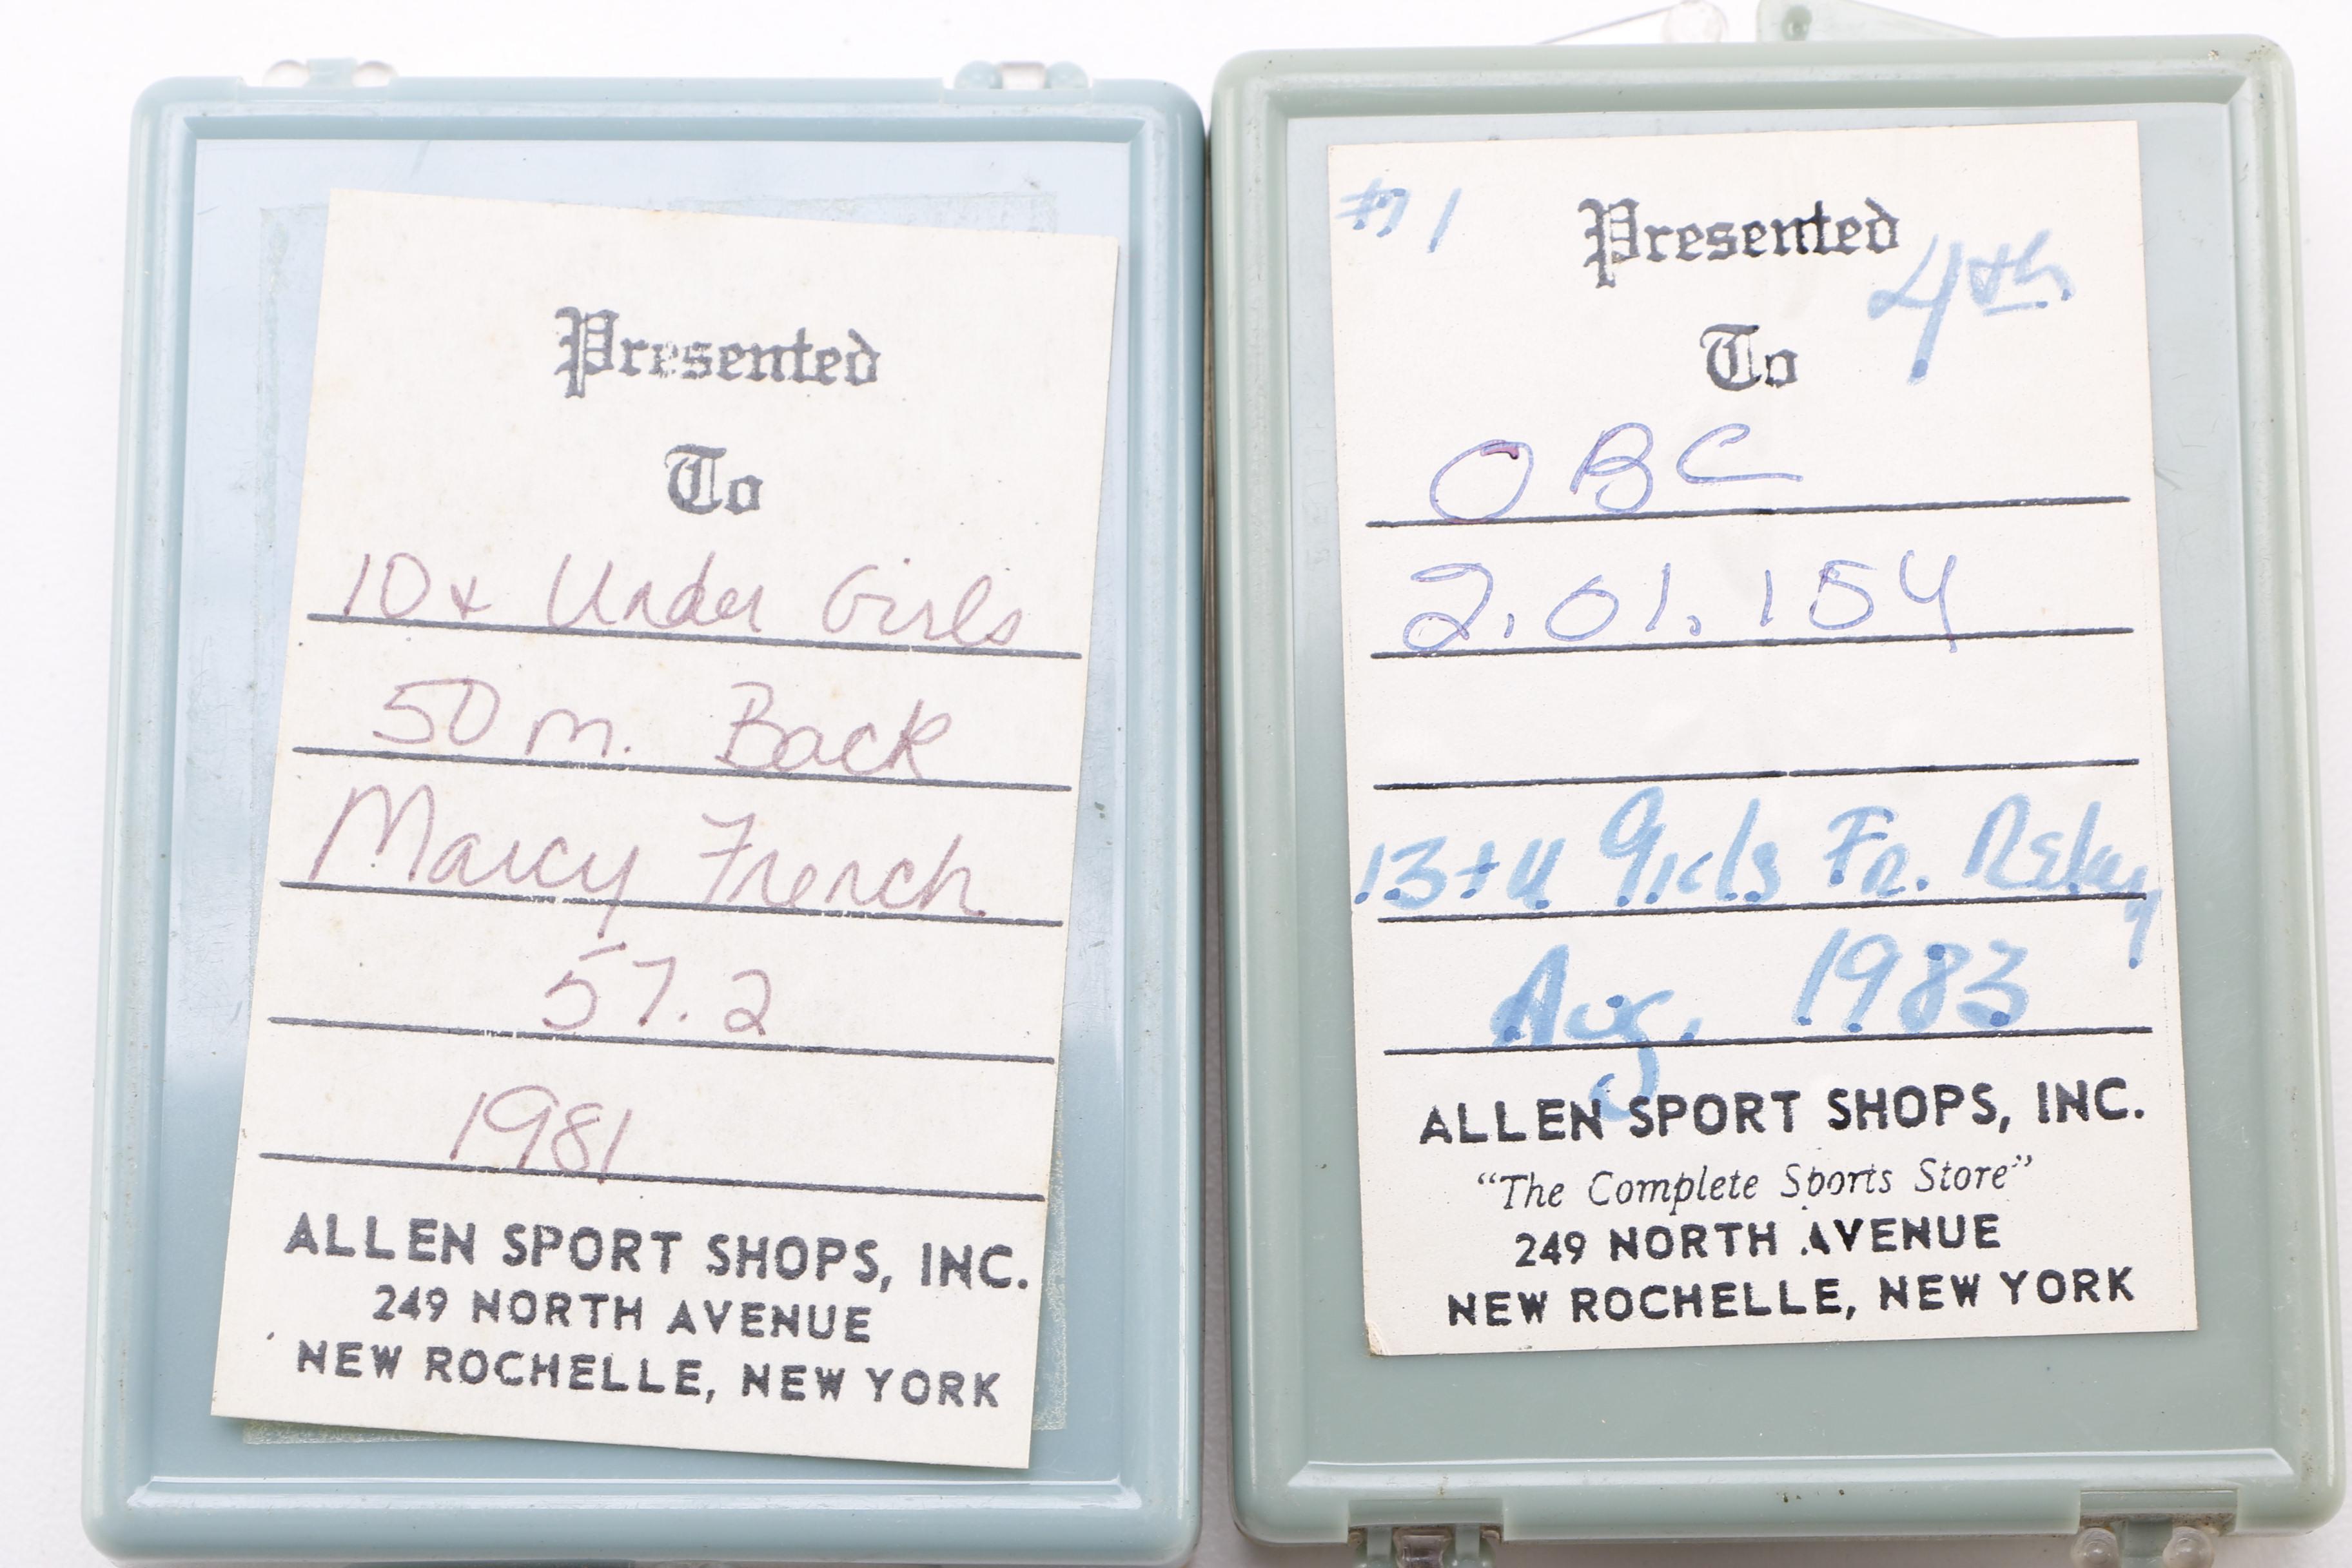 Presented
To
10 & Under Girls
50 m. Back
Marcy French
57.2
1981
ALLEN SPORT SHOPS, INC.
249 NORTH AVENUE
NEW ROCHELLE, NEW YORK
#71
Presented
4th
To
OBC
2.01.154
13+U Girls Fr. Relay
Aug. 1983
ALLEN SPORT SHOPS, INC.
"The Complete Sports Store"
249 NORTH AVENUE
NEW ROCHELLE, NEW YORK